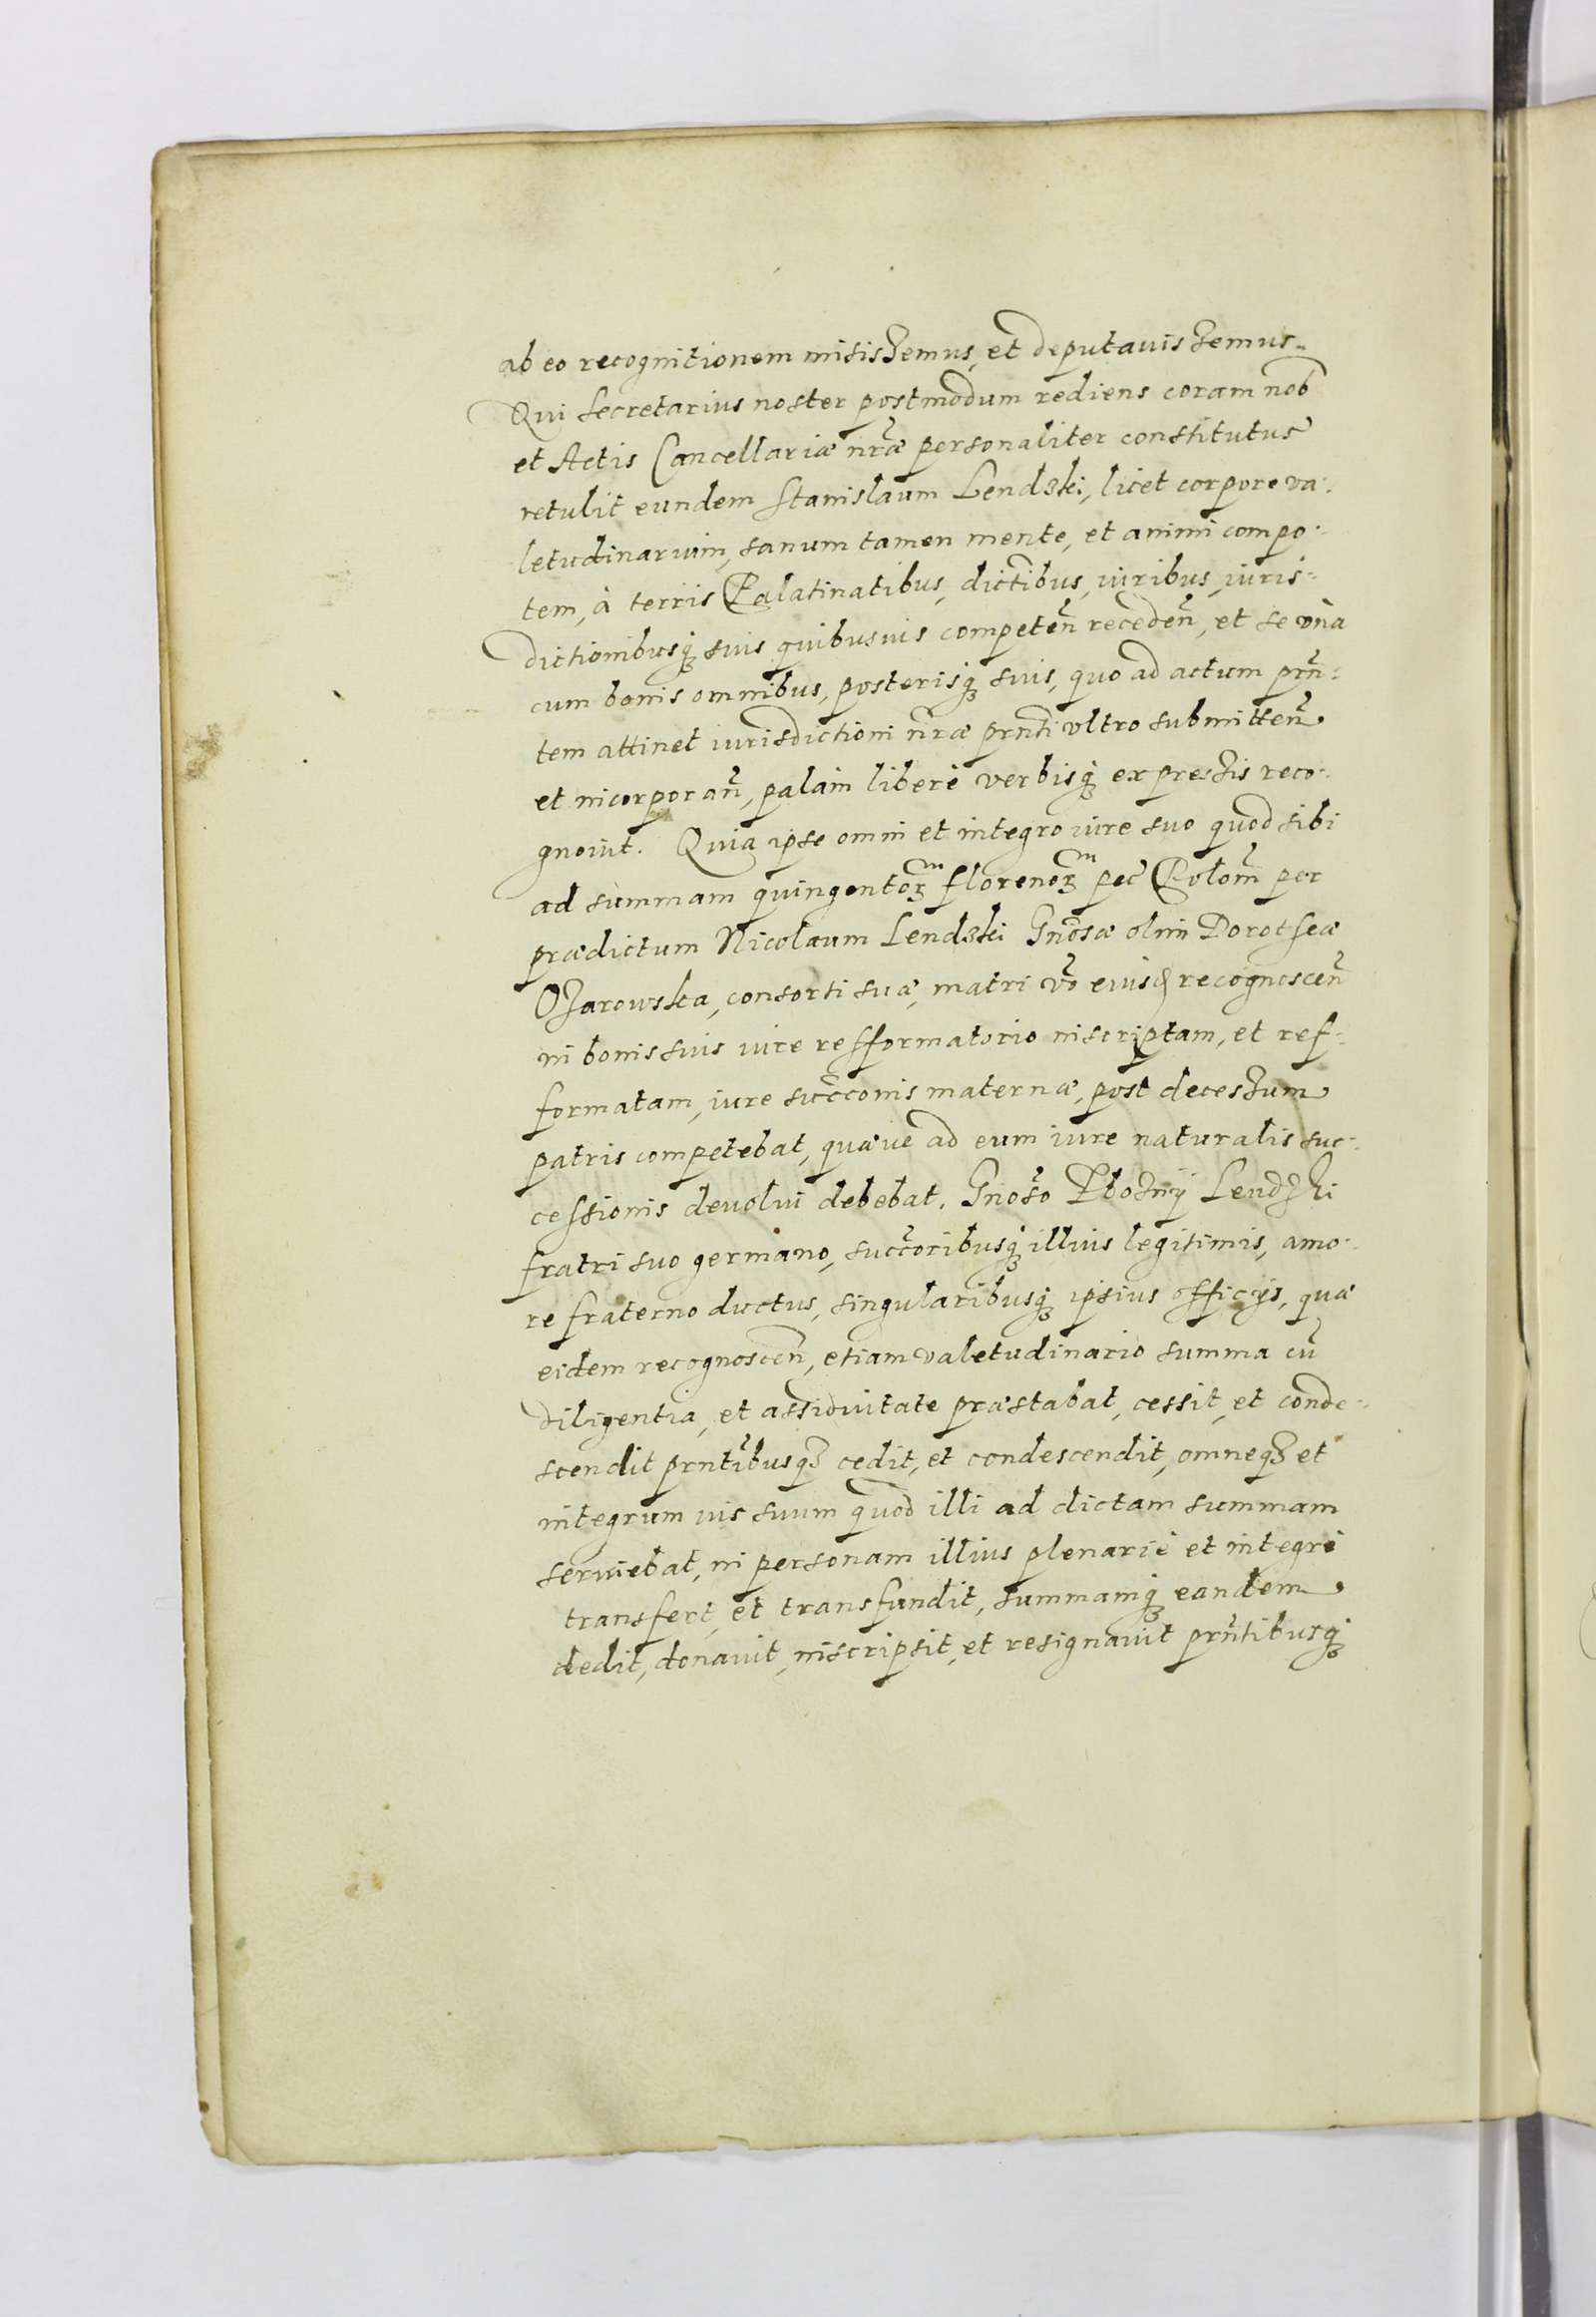 ab eo recognitionem misissemus, et deputavissemus.
Qui Secretarius noster postmodum rediens coram nob̃
et Actis Cancellariæ nr̃æ personaliter constitutus
retulit eundem Stanislaum Lendzki, licet corpore va:
letudinarium, sanum tamen mente, et animi compo:
tem, à terris Palatinatibus, dictĩbus, iuribus, iuris:
dictionibusq́ suis quibusvis competeñ recedeñ, et se vnà
cum bonis omnibus, posterisq́ suis, quo ad actum prñ:
tem attinet iurisdictioni nr̃æ prñti vltro submitteñ
et incorporañ, palàm liberè verbisq́ expressis reco:
gnovit. Quia ipse omni et integro iure suo quod sibi
ad summam quingentor̃ florenor̃ pec̃ Polom̃ per
prædictum Nicolaum Lendzki Gnõsæ olim Dorotheæ
Ożarowska, consorti suæ, matri vo̊ eiusd recognosceñ
in bonis suis iure refformatorio inscriptam, et ref:
formatam, iure succ̃conis maternæ, post decessum
patris competebat, quæve ad eum iure naturalis suc:
cessionis devolui debebat. Gnoso̊ Pbożnÿ Lendzki
fratri suo germano, succ̃oribusq́ illius legitimis, amo:
re fraterno ductus, singularibusq́ ipsius officÿs, quæ
eidem recognosceñ, etiam valetudinario summa cũ
diligentia, et assiduitate præstabat, cessit, et conde:
scendit prñtĩbusq́ cedit, et condescendit, omneq́ et
integrum ius suum quod illi ad dictam summam
serviebat, in personam illius plenariè et integrè
transfert, et transfundit, summamq́ eandem
dedit, donavit, inscripsit, et resignavit prñtibusq́